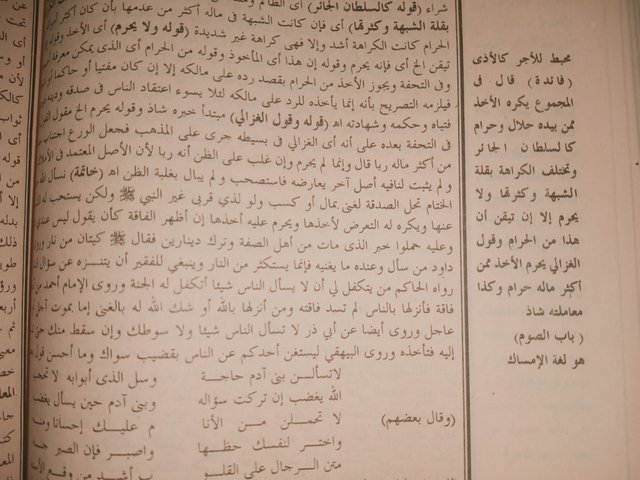 شراء (قوله كالسلطان الجائر) أى الظالم
بقلة الشبهة وكثرتها) أى فإن كانت الشبهة فى ماله أكثر من عدمها بأن كان أكثر
الحرام كانت الكراهة أشد وإلا فهى كراهة غير شديدة (قوله ولا يحرم) أى الأخذ
تيقن الخ أى فإنه يحرم وقوله إن هذا أى المأخوذ وقوله من الحرام أى الذى يمكن معرفة
وفى التحفة ويجوز الأخذ من الحرام بقصد رده على مالكه إلا إن كان مفتيا أو حاكما أو
فيلزمه التصريح بأنه إنما يأخذه للرد على مالكه لئلا يسوء اعتقاد الناس فى صدقه ودينه
فتياه وحكمه وشهادته اه (قوله وقول الغزالى) مبتدأ خبره شاذ وقوله يحرم الخ مقول
فى التحفة بعده على أنه أى الغزالى فى بسيطه جرى على المذهب فجعل الورع اجتناب
من أكثر ماله ربا قال وإنما لم يحرم وإن غلب على الظن أنه ربا لأن الأصل المعتمد فى الأملاك
ولم يثبت لنا فيه أصل آخر يعارضه فاستصحب ولم يبال بغلبة الظن اه (خاتمة) نسأل الله
الختام تحل الصدقة لغنى بمال أو كسب ولو لذى قربى غير النبى ﷺ ولكن يستحب له
عنها ويكره له التعرض لأخذها ويحرم عليه أخذها إن أظهر الفاقة كأن يقول ليس عندى
وعليه حملوا خبر الذى مات من أهل الصفة وترك دينارين فقال ﷺ كيتان من نار وروى
داود من سأل وعنده ما يغنيه فإنما يستكثر من النار وينبغى للفقير أن يتنزه عن سؤال
رواه الحاكم من يتكفل لى أن لا يسأل الناس شيئا أتكفل له الجنة وروى الإمام أحمد من
فاقة فأنزلها بالناس لم تسد فاقته ومن أنزلها بالله أو شك الله له بالغنى إما بموت آجل
عاجل وروى أيضا عن أبى ذر لا تسأل الناس شيئا ولا سوطك وإن سقط منك حتى
إليه فتأخذه وروى البيهقى ليستغن أحدكم عن الناس بقضيب سواك وما أحسن قول
لا تسألن بنى آدم حاجة وسل الذى أبوابه لا تحجب
الله يغضب إن تركت سؤاله وبنى آدم حين يسأل يغضب
(وقال بعضهم) لا تحملن من الأنا م عليك إحسانا ومنه
واختر لنفسك حظها واصبر فإن الصبر جنه
منن الرجال على القلو ب أشد من وقع
محبط للأجر كالأذى
(فائدة) قال فى
المجموع يكره الأخذ
ممن بيده حلال وحرام
كالسلطان الجائر
وتختلف الكراهة بقلة
الشبهة وكثرتها ولا
يحرم إلا إن تيقن أن
هذا من الحرام وقول
الغزالى يحرم الأخذ ممن
أكثر ماله حرام وكذا
معاملته شاذ
(باب الصوم)
هو لغة الإمساك